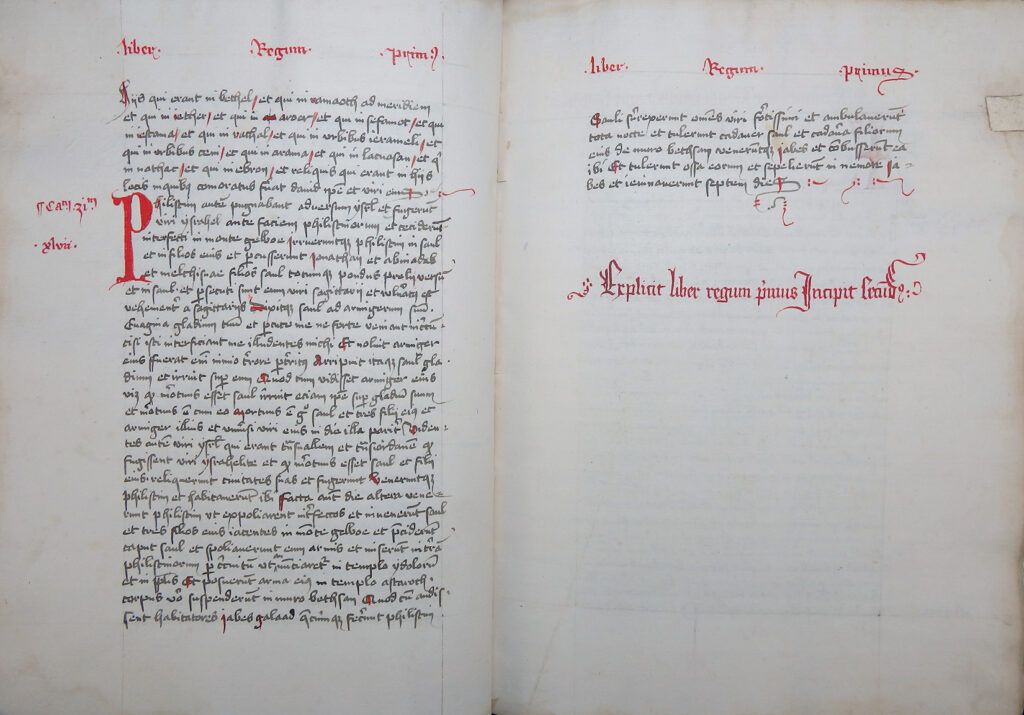 liber Regum Prim9
hijs qui erant in bethel / et qui in ramaoth ad meridiem
et qui in iether / et qui in aroer / et qui in sefamot / et qui
in iestama / et qui in rachal / et qui in urbibus ierameli / et qui
in urbibus ceni / et qui in arama / et qui in lacuasan / et q̄
in nathac / et qui in ebron / et reliquis qui erant in hijs
locis in quibꝫ comoratus fuat dauid ip̄e et viri eius
Philistiim autē pugnabant aduersum ysrl̄ et fugerūt
viri ysrahel ante faciem philistinorum et ceciderūt
interfecti in monte gelboe Irrueruntqꝫ philistiim in saul
et in filios eius et percusserunt ionathan et abinadab
et melchisue filios saul totumqꝫ pondus prelij versū
et in saul et p̄secuti sunt eum viri sagittarij et vulnatꝯ est
vehement̄ a sagittarijs Dixitqꝫ saul ad armigerum suū
Euagina gladium tuū et p̄cute me ne forte veniant incircū
cisi isti interficiant me illudentes michi Et noluit armiger
eius fuerat em̄ nimio t̄rore p̄territꝯ Arripuit itaqꝫ saul gla
dium et irruit sup̄ eum Quod cum vidisset armiger eius
viꝫ qꝫ mortuus esset saul irruit eciam ip̄e sup̄ gladiū suum
et mortuus ē cum eo Mortuus ē gͦ saul et tres filij eiꝯ et
armiger illius et vniuersi viri eius in die illa parit̄ Viden
tes autē viri ysrl̄ qui erant trās vallem et trās iordanē qꝫ
fugissent viri ysrahelite et qꝫ mortuus esset saul et filij
eius reliquerunt ciuitates suas et fugerunt Veneruntqꝫ
philistiim et habitauerūt ibi Facta aūt die altera vene
runt philistiim vt expoliarent int̄fectos et inuenerunt saul
et tres filios eius iacentes in mōte gelboe et p̄ciderūt
caput saul et spoliauerunt eum armis et miserūt in t̄rā
philistinorum p̄ circuitū vt annunciaret̄ in templo ydolorū
et in pplīs Et posuerūt arma eiꝯ in templo astaroth
corpus v̄o suspenderūt in muro bethsan Quod cū audis
sent habitatores iabes galaad quecumqꝫ fecerūt philistiim
¶ Caᵐ ziᵐ
xlvii
liber Regum primus
Sauli surrexerunt omēs viri fortissimi et ambulauerūt
tota nocte et tulerunt cadauer saul et cadauera filiorum
eius de muro bethsan veneruntqꝫ iabes et combusserūt ea
ibi Et tulerunt ossa eorum et sepelierūt in nemore ia
bes et ieiunauerunt septem diebꝫ
Explicit liber regum primus Incipit secūdꝯ